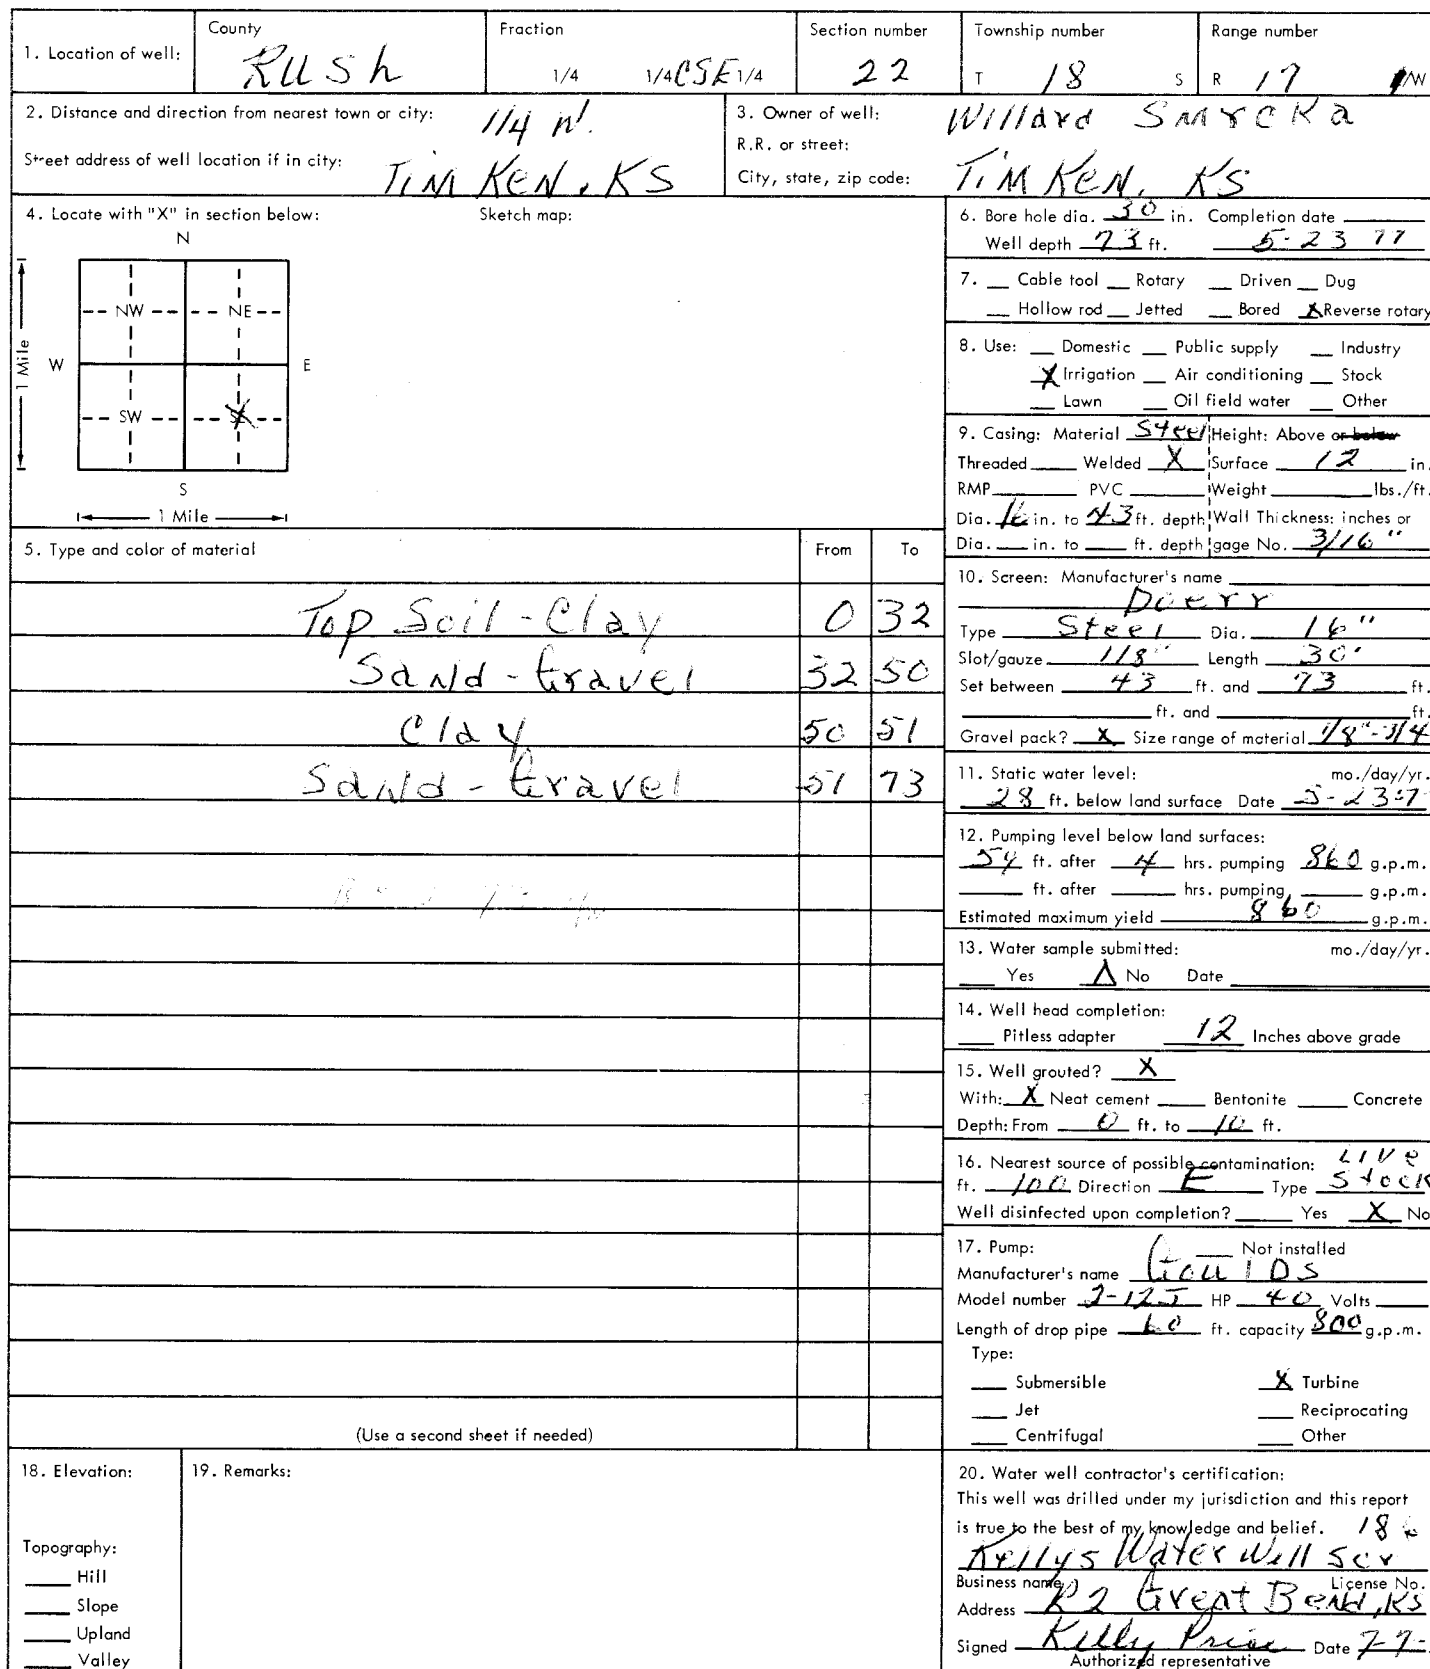 County Fraction Section number Township number Range number
1. Location of well: Rush 1/4 1/4 CSE 1/4 22 T 18 S R 17 /W
2. Distance and direction from nearest town or city: 1/4 W.
Street address of well location if in city: TimKen, KS
3. Owner of well: Willard Smrcka
R.R. or street:
City, state, zip code: TimKen, KS
4. Locate with "X" in section below: Sketch map:
N
NW NE
W E
1 Mile
SW SE X
S
1 Mile
5. Type and color of material From To
Top Soil - Clay 0 32
Sand - Gravel 32 50
Clay 50 51
Sand - Gravel 51 73
(Use a second sheet if needed)
6. Bore hole dia. 30 in. Completion date
Well depth 73 ft. 5-23 77
7. Cable tool Rotary Driven Dug
Hollow rod Jetted Bored X Reverse rotary
8. Use: Domestic Public supply Industry
X Irrigation Air conditioning Stock
Lawn Oil field water Other
9. Casing: Material Steel Height: Above or below
Threaded Welded X Surface 12 in.
RMP PVC Weight lbs./ft.
Dia. 16 in. to 43 ft. depth Wall Thickness: inches or
Dia. in. to ft. depth gage No. 3/16"
10. Screen: Manufacturer's name
Doerr
Type Steel Dia. 16"
Slot/gauze 1/8" Length 30'
Set between 43 ft. and 73 ft.
ft. and ft.
Gravel pack? X Size range of material 1/8"-3/4
11. Static water level: mo./day/yr.
28 ft. below land surface Date 5-23-7
12. Pumping level below land surfaces:
54 ft. after 4 hrs. pumping 860 g.p.m.
ft. after hrs. pumping g.p.m.
Estimated maximum yield 860 g.p.m.
13. Water sample submitted: mo./day/yr.
Yes X No Date
14. Well head completion:
Pitless adapter 12 Inches above grade
15. Well grouted? X
With: X Neat cement Bentonite Concrete
Depth: From 0 ft. to 10 ft.
16. Nearest source of possible contamination: Live
ft. 100 Direction E Type Stock
Well disinfected upon completion? Yes X No
17. Pump: Not installed
Manufacturer's name GoulDs
Model number HP 40 Volts
Length of drop pipe 60 ft. capacity 800 g.p.m.
Type:
Submersible X Turbine
Jet Reciprocating
Centrifugal Other
18. Elevation:
Topography:
Hill
Slope
Upland
Valley
19. Remarks:
20. Water well contractor's certification:
This well was drilled under my jurisdiction and this report
is true to the best of my knowledge and belief.
Kellys Water Well Ser
Business name License No.
Address R2 Great Bend, KS
Signed Kelly Price Date 7-7-
Authorized representative